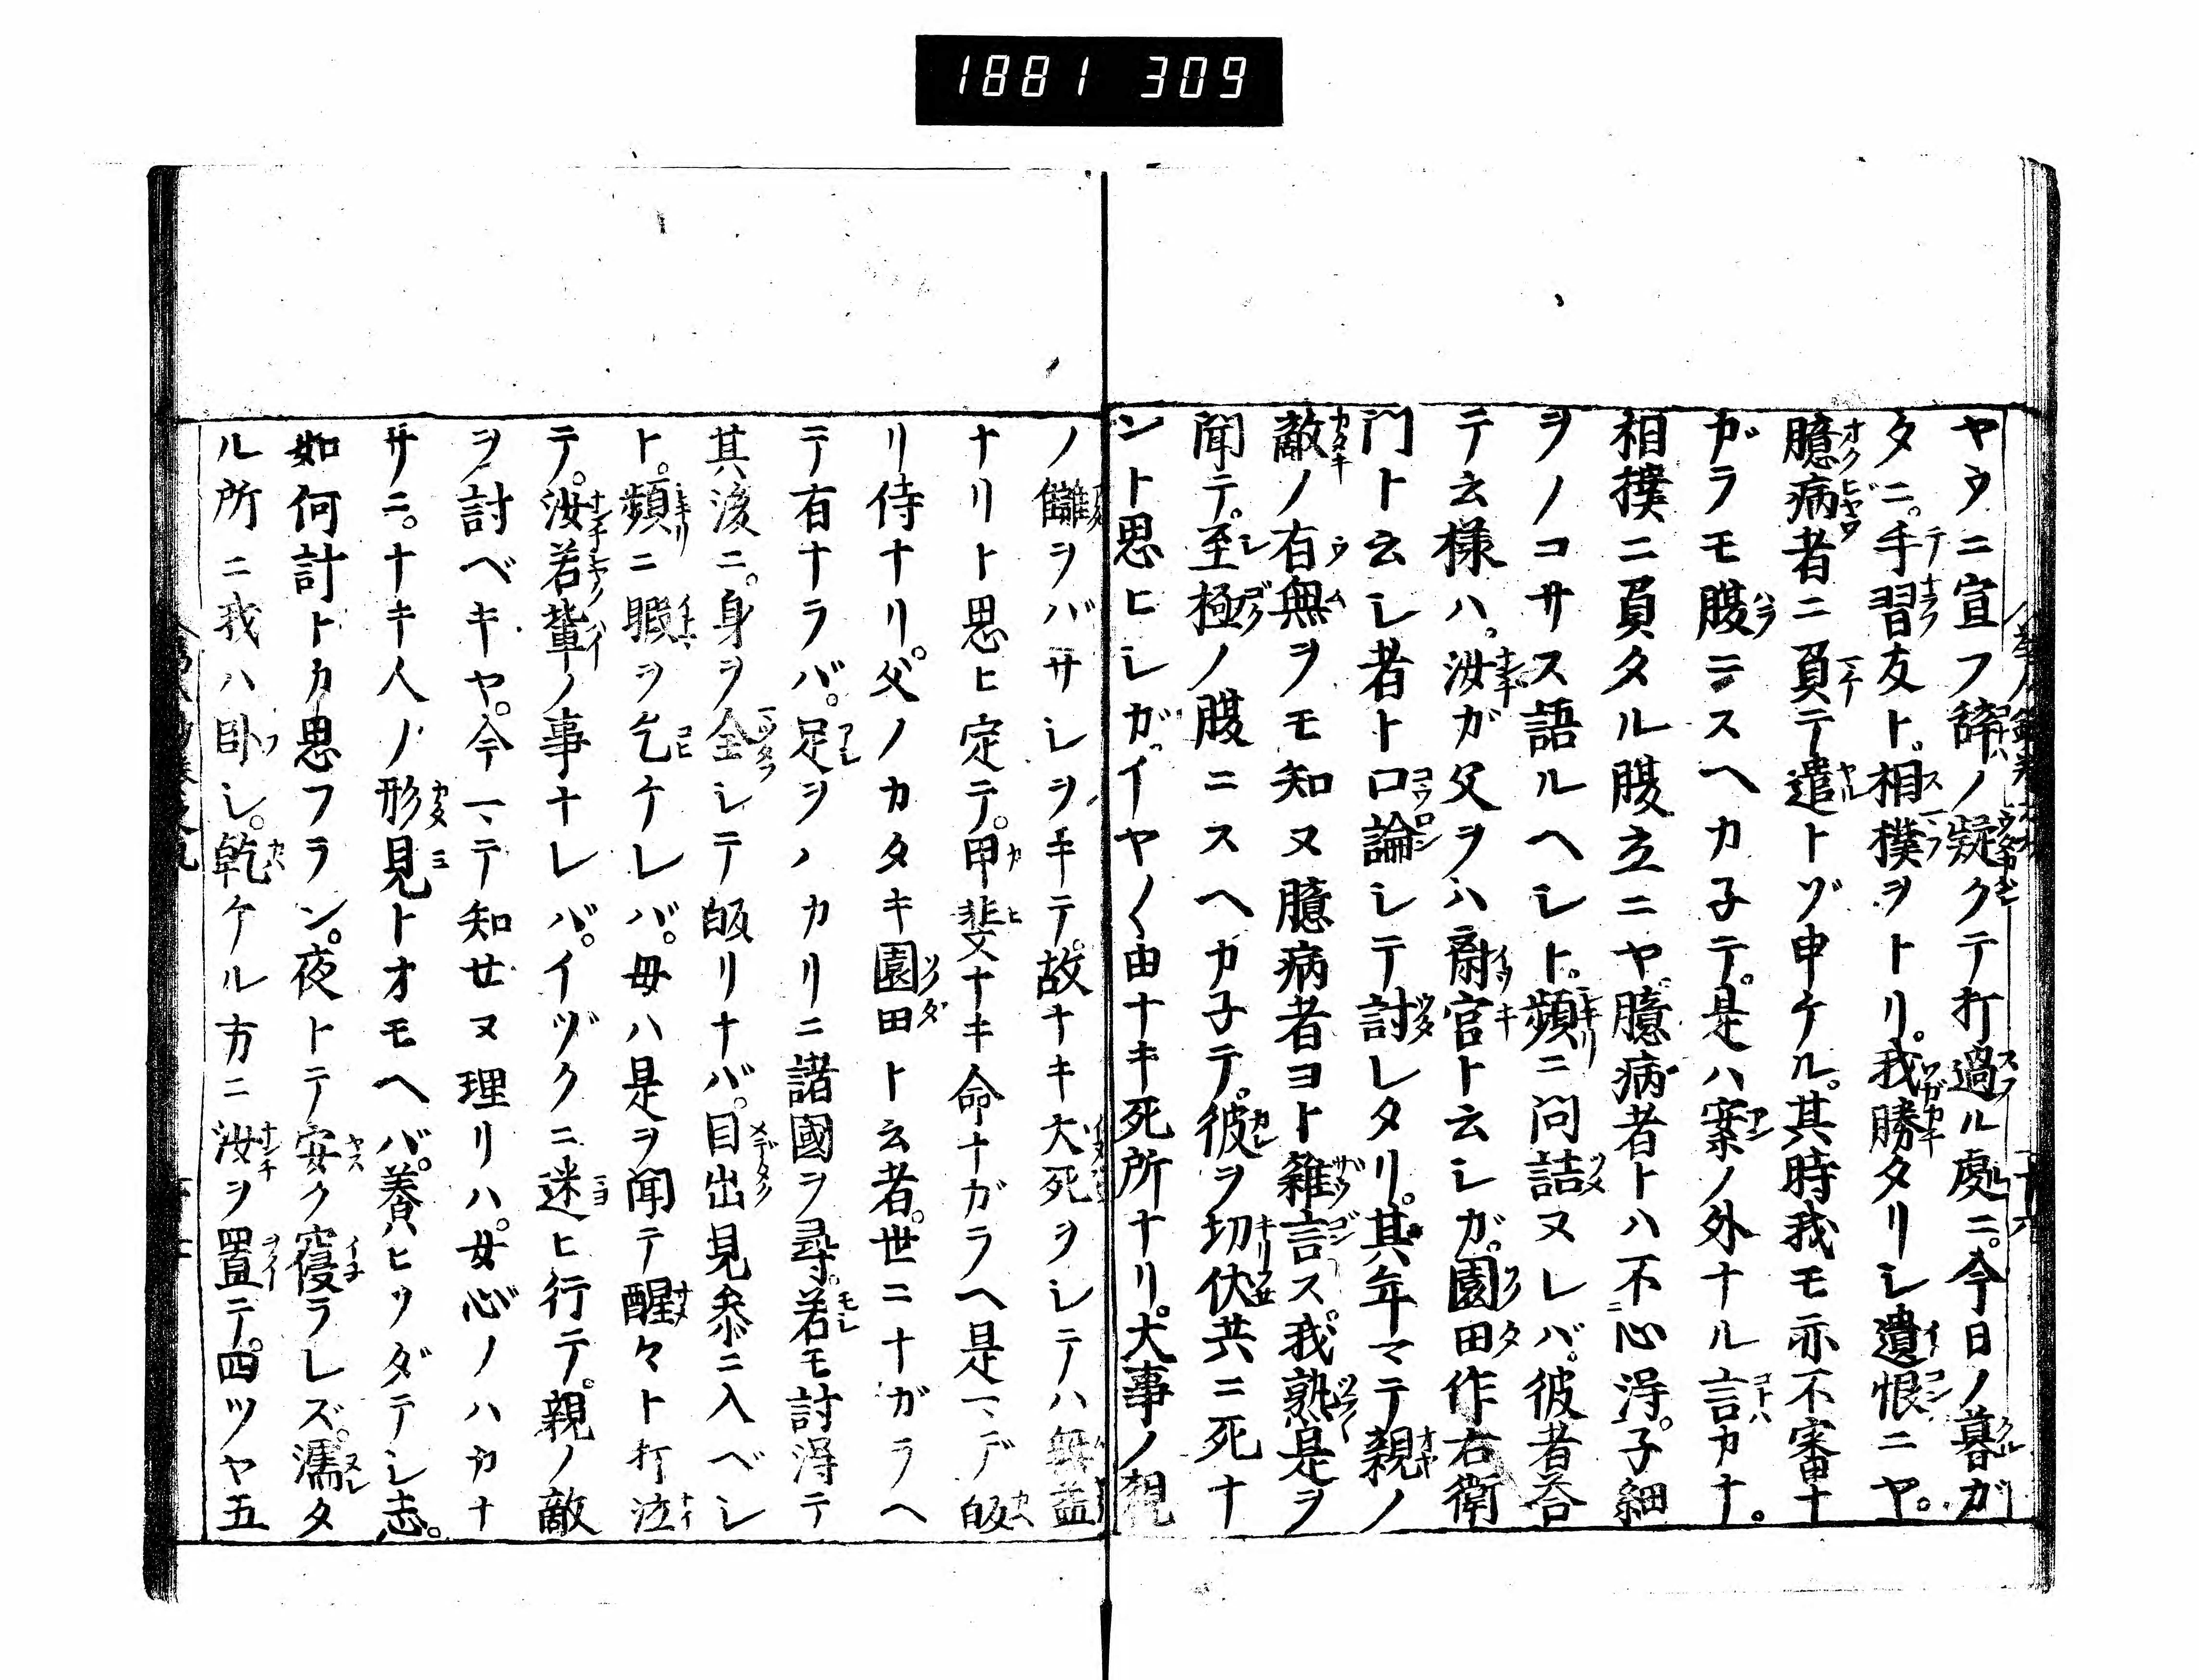 1881 309
ヤウニ宣フ辞ノ疑クテ打過ル處ニ。今日ノ暮ガ
タニ。手習友ト。相撲ヲトリ。我勝タリシ遺恨ニヤ。
臆病者ニ負テ遣トゾ申ケル。其時我モ亦不審ナ
ガラモ腹ニスヘカ子テ。是ハ案ノ外ナル言カナ。
相撲ニ負タル腹立ニヤ。臆病者トハ不心得。子細
ヲノコサス語ルヘシト。頻ニ問詰ヌレバ。彼者答
テ云様ハ。汝ガ父ヲハ斎宮ト云シガ。園田作右衛
門ト云シ者ト口論シテ討レタリ。其年マテ親ノ
敵ノ有無ヲモ知ヌ臆病者ヨト雑言ス。我熟是ヲ
聞テ。至極ノ腹ニスヘカ子テ。彼ヲ切伏共ニ死ナ
ント思ヒシガ。イヤ〱由ナキ死所ナリ。大事ノ親
ノ讎ヲバサシヲキテ。故ナキ犬死ヲシテハ無益
ナリト思ヒ定テ。甲斐ナキ命ナガラヘ是マデ皈
リ侍ナリ。父ノカタキ園田ト云者。世ニナガラヘ
テ有ナラバ。足ヲハカリニ諸國ヲ尋。若モ討得テ
其後ニ。身ヲ全シテ皈リナバ。目出見参ニ入ベシ
ト。頻ニ暇ヲ乞ケレバ。母ハ是ヲ聞テ醒々ト打泣
テ。汝若輩ノ事ナレバ。イヅクニ迷ヒ行テ。親ノ敵
ヲ討ベキヤ。今マテ知セヌ理リハ。女心ノハカナ
サニ。ナキ人ノ形見トオモヘバ。養ヒソダテシ志。
如何計トカ思フラン。夜トテ安ク寝ラレズ。濡タ
ル所ニ我ハ臥シ。乾ケル方ニ汝ヲ置テ。四ツヤ五